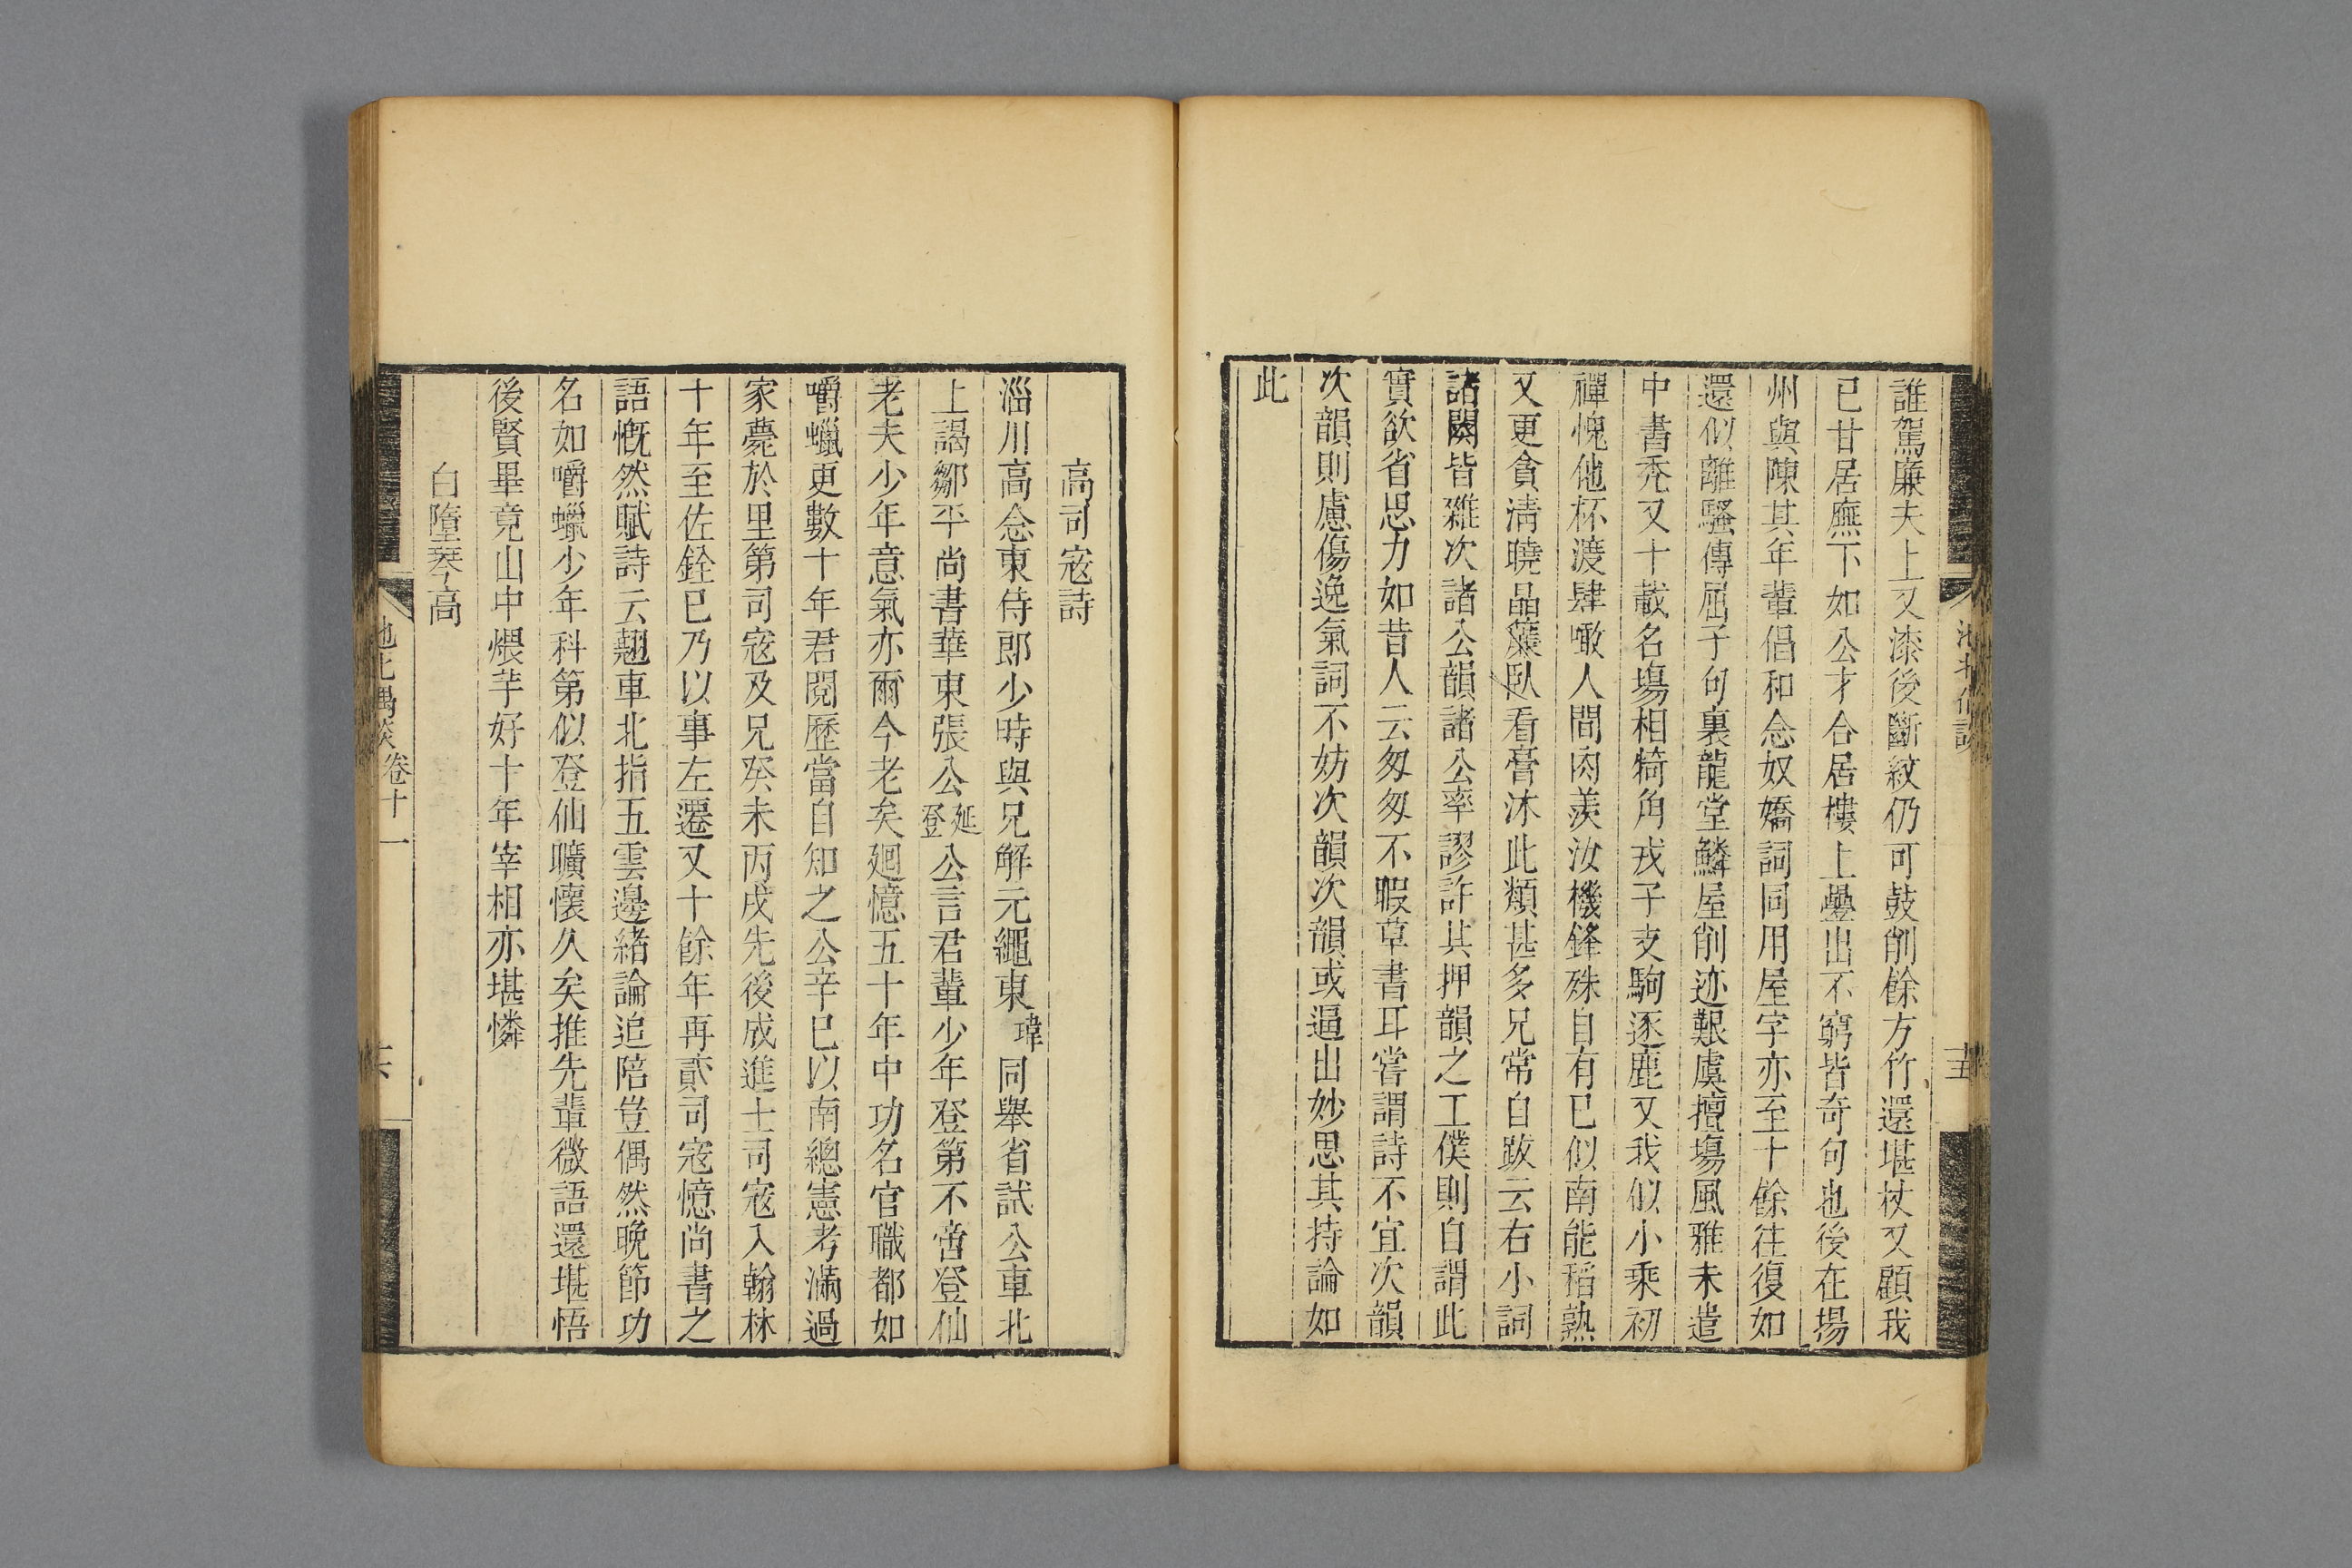 誰駕廉夫上又漆後斷紋仍可鼓削餘方竹還堪杖又顧我
已甘居廡下如公才合居樓上疊出不窮皆奇句也後在揚
州與陳其年輩倡和念奴嬌詞同用屋字亦至十餘往復如
還似離騷傳屈子句裏龍堂鱗屋削迹艱虞擅塲風雅未遣
中書禿又十載名塲相犄角戎子支駒逐鹿又我似小乘初
禪愧他杯渡肆噉人間肉羨汝機鋒殊自有已似南能稻熟
又更貪清曉晶簾臥看膏沐此類甚多兄常自跋云右小詞
諸闋皆雜次諸公韻諸公率謬許其押韻之工僕則自謂此
實欲省思力如昔人云匆匆不暇草書耳嘗謂詩不宜次韻
次韻則慮傷逸氣詞不妨次韻次韻或逼出妙思其持論如
此
五
高司寇詩
淄川高念東侍郎少時與兄解元繩東瑋同舉省試公車北
上謁鄒平尚書華東張公延登公言君輩少年登第不啻登仙
老夫少年意氣亦爾今老矣廻憶五十年中功名官職都如
嚼蠟更數十年君閱歷當自知之公辛巳以南總憲考滿過
家薨於里第司寇及兄癸未丙戌先後成進士司寇入翰林
十年至佐銓巳乃以事左遷又十餘年再貳司寇憶尚書之
語慨然賦詩云趨車北指五雲邊緒論追陪豈偶然晚節功
名如嚼蠟少年科第似登仙曠懷久矣推先輩微語還堪悟
後賢畢竟山中煨芋好十年宰相亦堪憐
白墮琴高
池北偶談 卷十一